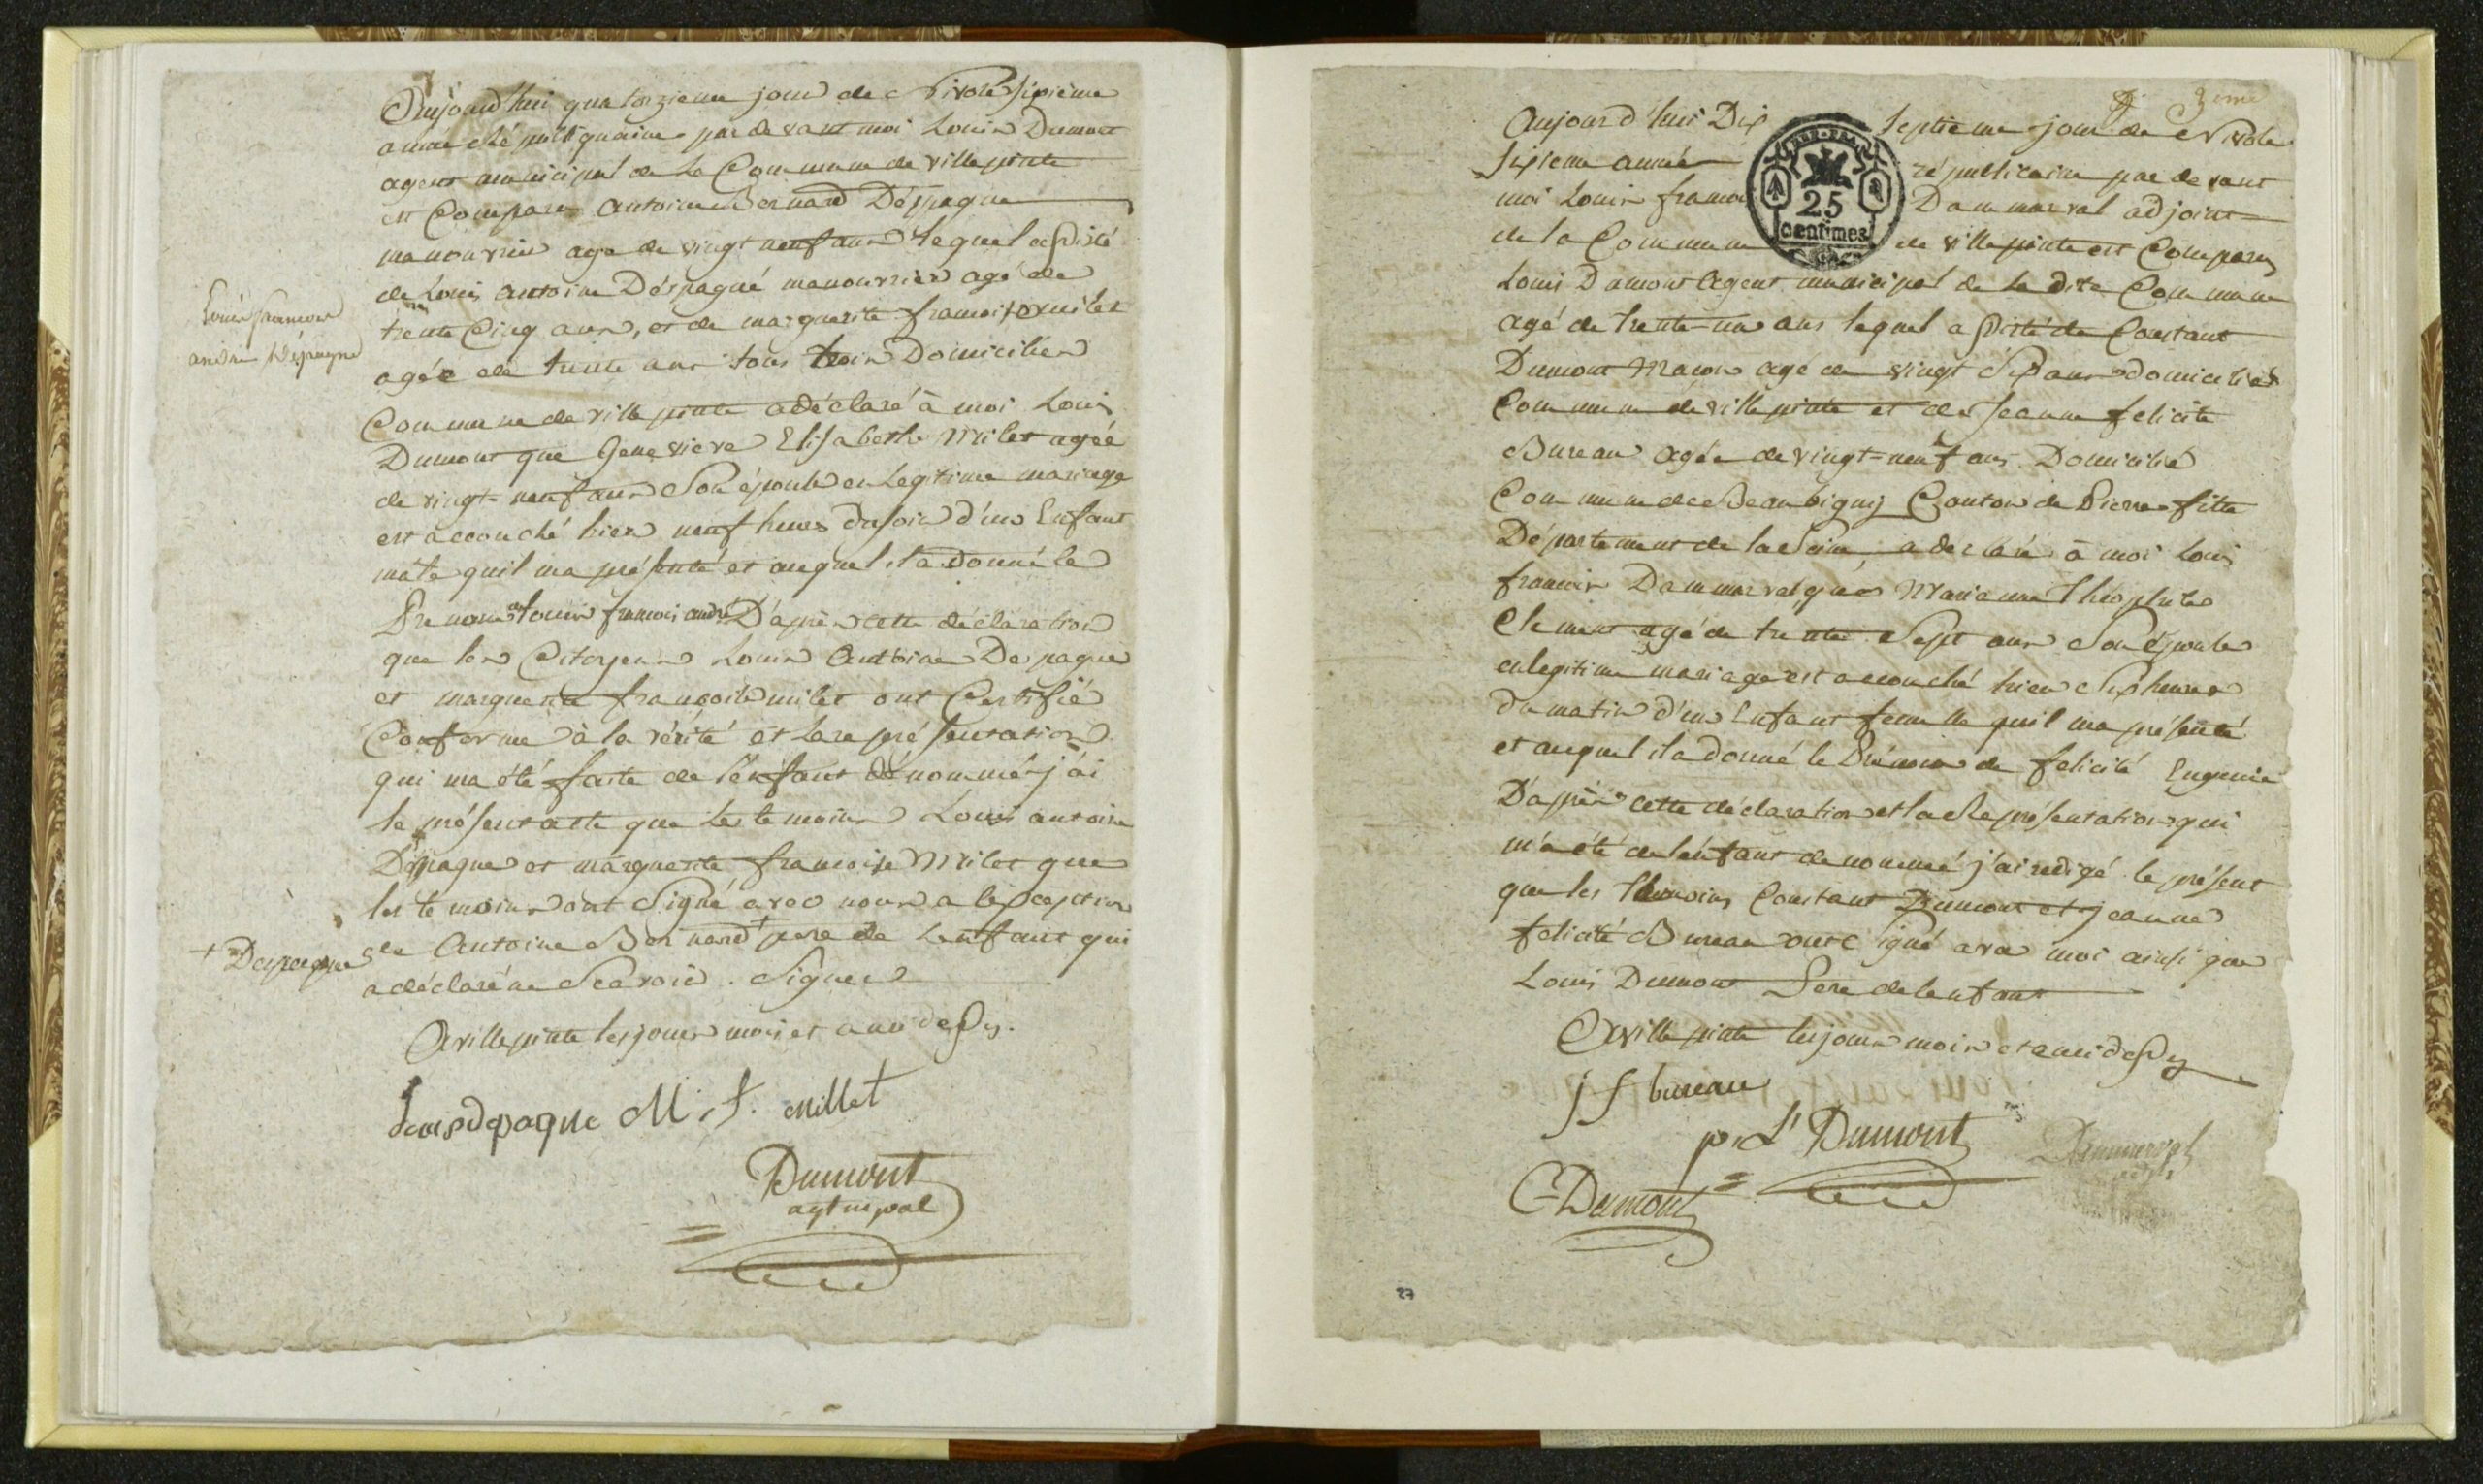 Aujourd'hui quatorzieme jour de Nivose sixieme
année République par devant moi Louis Dumont
agent municipal de la Commune de villepinte
est Comparu Antoine Bernard Déspagne
manouvrier age de vingt neuf ans lequel assisté
de Louis antoine Déspagne manouvrier agé de
trente Cinq ans, et de marguerite francoise milet
agée de trente ans tous trois Domiciliés
Louis francois
andré Déspagne
Commune de villepinte a déclaré à moi Louis
Dumont que Genevieve Elisabethe Milet agée
de vingt-neuf ans Son épouse en Legitime mariage
est accouché hier neuf heures du soir d'un Enfant
mâle quil ma présenté et auquel il a donné le
Prenom de Louis francois andré D'après cette déclaration
que les Citoyens Louis Antoine Despagne
et marguerite francoise milet ont Certifié
Conforme à la vérité et la représentation
qui ma été faite de l'enfant dénommé j'ai
le présent acte que les temoins Louis antoine
Déspagne et marguerite francoise Milet que
les temoins ont Signé avec nous a l'exception
de Antoine Bernard + pere de Lenfant qui
+ Despagne
a déclaré ne Scavoir Signer
A villepinte les jours mois et an dessus.
Louis depagne M. f. millet
Dumont
agt mpal
3eme
Aujourd'huis Dix Septieme jour de Nivose
Sixieme année républicaine par devant
25
centimes
moi Louis francois Dammarval adjoint
de la Commune de villepinte est Comparu
Louis Dumont Agent municipal de la dite Commune
agé de trente-un ans lequel assisté de Constant
Dumont Macon agé de vingt Six ans domicilié
Commune de villepinte et de Jeanne felicité
Bureau agée de vingt-neuf ans Domicilié
Commune de Beaubigny Canton de Pierrefitte
Département de la Seine a declaré à moi Louis
francois Dammarval que Marianne Théophile
Clement agé de trente Sept ans Son épouse
en legitime mariage est accouché hier Six heures
du matin d'un Enfant femelle quil ma présenté
et auquel il a donné le Prénom de felicité Eugenie
D'aprèss cette déclaration et la Représentation qui
m'a été de l'enfant denommé j'ai redigé le présent
que les temoins Constant Dumont et jeanne
felicité Bureau ont Signé avec moi ainsi que
Louis Dumont Pere de lenfant
A villepinte les jours mois et an dessus
j f bureau
p. L' Dumont
Dammarval
C-Dumont
27